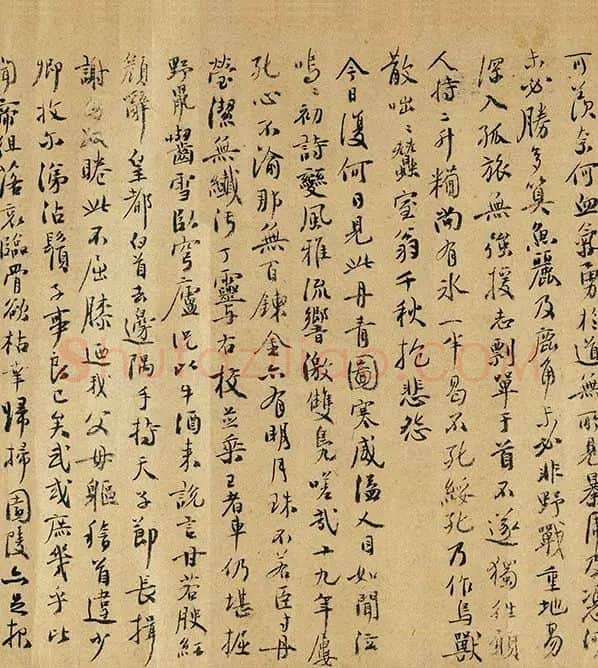 可羨奈何血氣勇於道無所見暴虎及憑河
未必勝多算魚麗及鹿角未必非野戰重地易
深入孤旅無強援志剽單于首不遂獨往願
人持二升糒尚有冰一半曷不死綏死乃作鳥獸
散咄〻蠶室翁千秋抱悲惋
今日復何日見此丹青圖寒威溢人目如聞泣
嗚〻初詩變風雅流響激雙鳧嗟哉十九年屢
死心不渝那無百鍊金亦有明月珠不若臣寸丹
瑩潔無纖汙丁靈与右校並乘王者車仍堪掘
野鼠嚙雪臥穹廬況此牛酒來說言甘若腴紅
顏辭皇都白首去邊隅手持天子節長揖
謝匈奴睠此不屈膝迺我父母軀稽首違少
卿收尔涕沾鬚子事良已矣武或庶幾乎比
聞帝殂落哀臨骨欲枯幸歸掃園陵亦足報